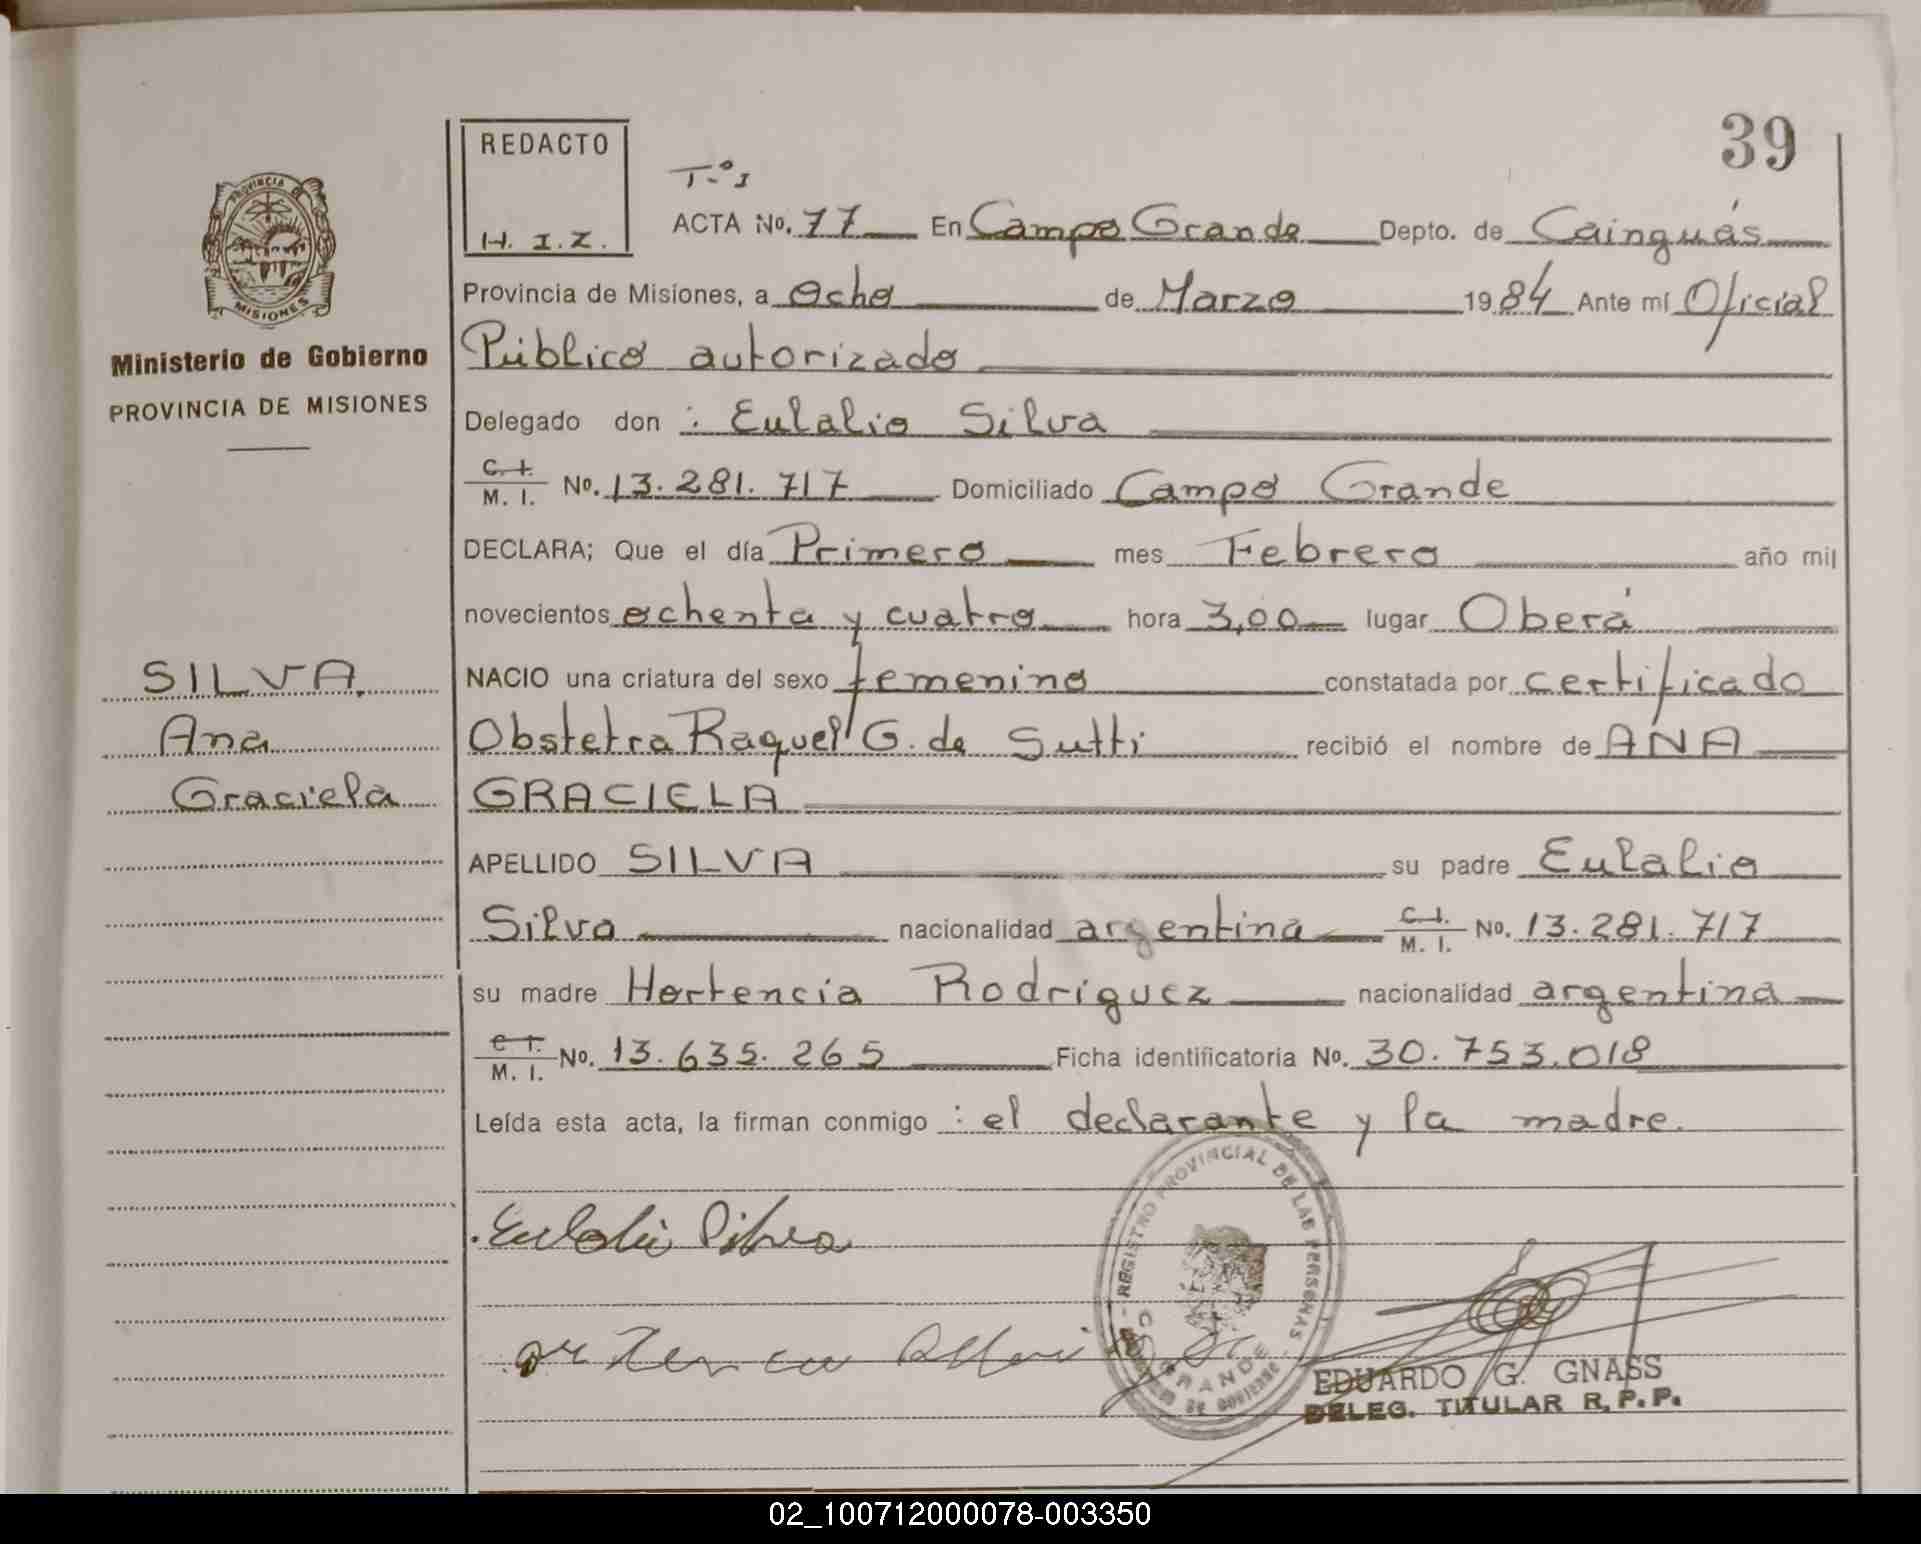 39
REDACTO
H. I. Z.
T.º I
ACTA No. 77 En Campo Grande Depto. de Cainguás
Provincia de Misiones, a Ocho de Marzo 1984 Ante mí Oficial
Público autorizado
Delegado don : Eulalio Silva
C. I. M. I. No. 13.281.717 Domiciliado Campo Grande
DECLARA; Que el día Primero mes Febrero año mil
novecientos ochenta y cuatro hora 3,00 lugar Oberá
NACIO una criatura del sexo femenino constatada por certificado
Obstetra Raquel G. de Sutti recibió el nombre de ANA
GRACIELA
APELLIDO SILVA su padre Eulalio
Silva nacionalidad argentina C. I. M. I. No. 13.281.717
su madre Hortencia Rodriguez nacionalidad argentina
C. I. M. I. No. 13.635.265 Ficha identificatoria No. 30.753.018
Leída esta acta, la firman conmigo : el declarante y la madre.
PROVINCIA DE
MISIONES
Ministerio de Gobierno
PROVINCIA DE MISIONES
SILVA
Ana
Graciela
Eulalio Silva
REGISTRO PROVINCIAL DE LAS PERSONAS
GRANDE
EDUARDO G. GNASS
DELEG. TITULAR R. P. P.
02_100712000078-003350